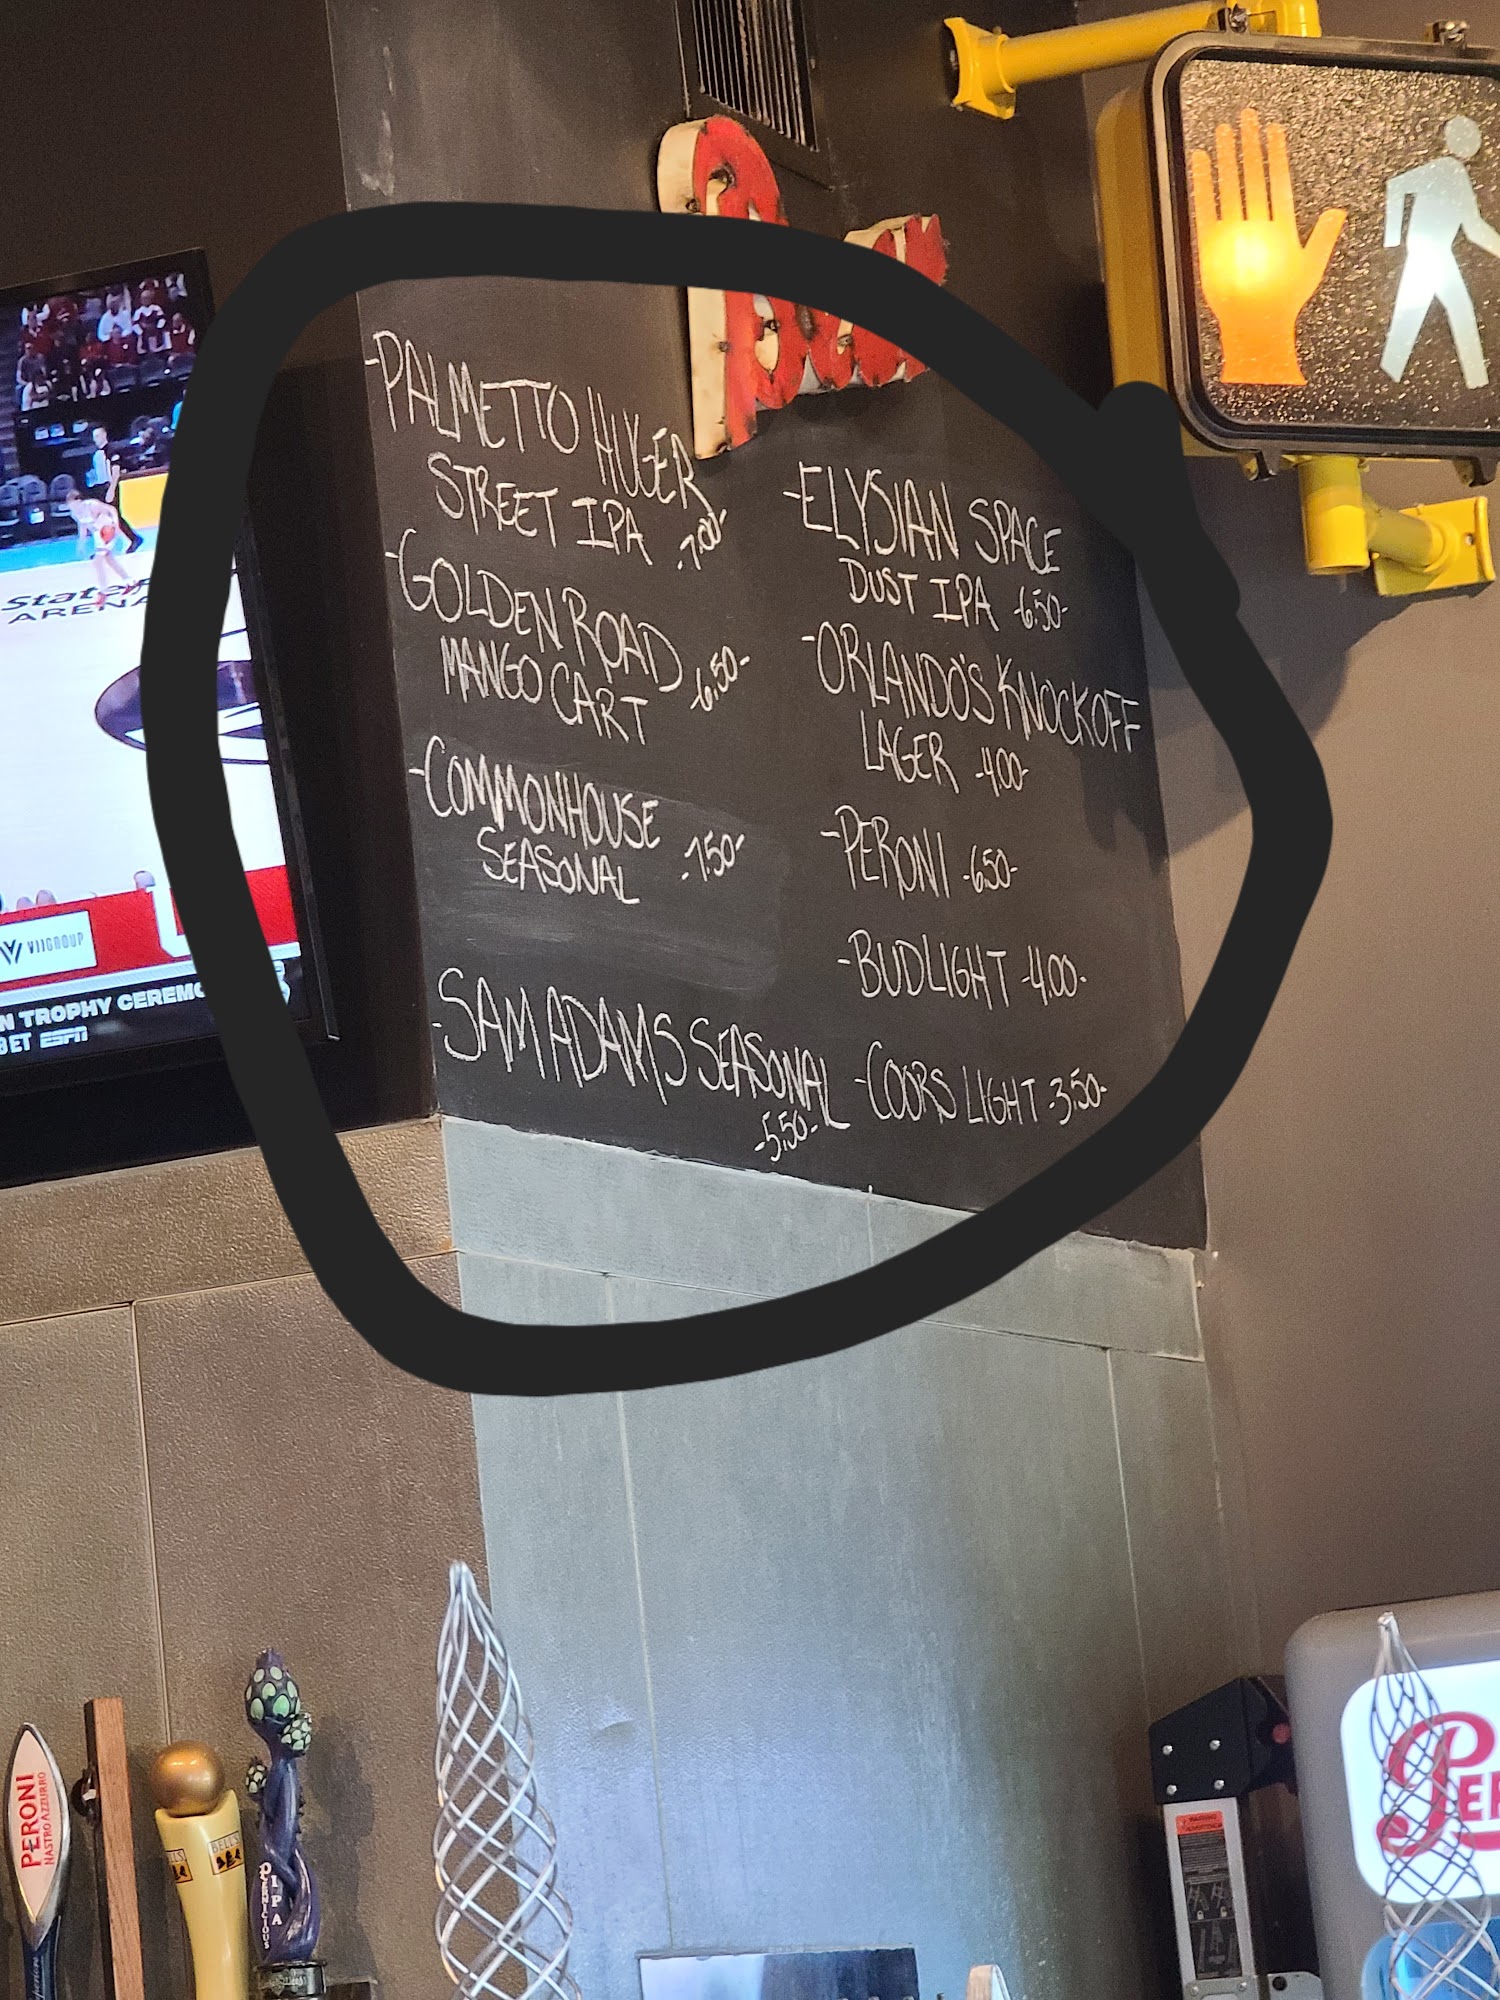 Beer
-PALMETTO HUGER
STREET IPA -7.00-
-GOLDEN ROAD
MANGO CART -6.50-
-COMMONHOUSE
SEASONAL -7.50-
-SAM ADAMS SEASONAL
-5.50-
-ELYSIAN SPACE
DUST IPA -6.50-
-ORLANDO'S KNOCKOFF
LAGER -4.00-
-PERONI -6.50-
-BUDLIGHT -4.00-
-COORS LIGHT -3.50-
State
ARENA
VIIGROUP
N TROPHY CEREMO
BET ESPN
PERONI
NASTRO AZZURRO
BELL'S
PERNICIOUS
IPA
WARNING
PER